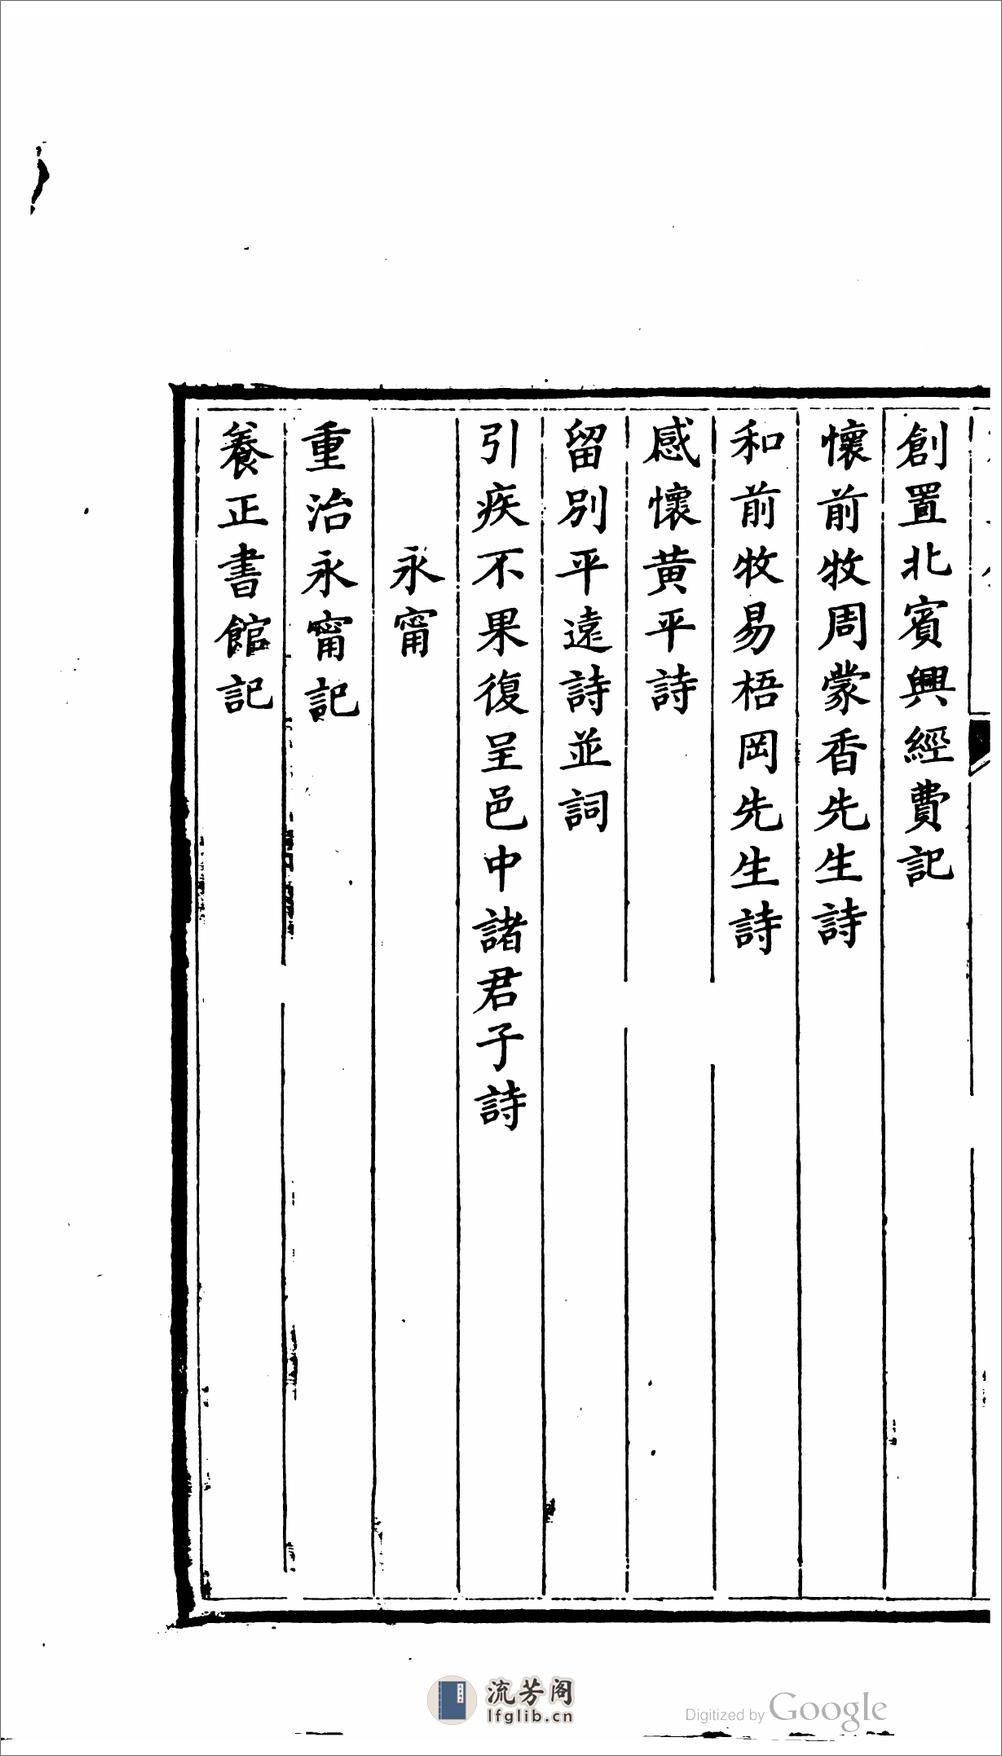 創置北賓興經費記
懷前牧周蒙香先生詩
和前牧易梧岡先生詩
感懷黃平詩
留別平遠詩並詞
引疾不果復呈邑中諸君子詩
永甯
重治永甯記
養正書館記
流芳阁
lfglib.cn
Digitized by Google